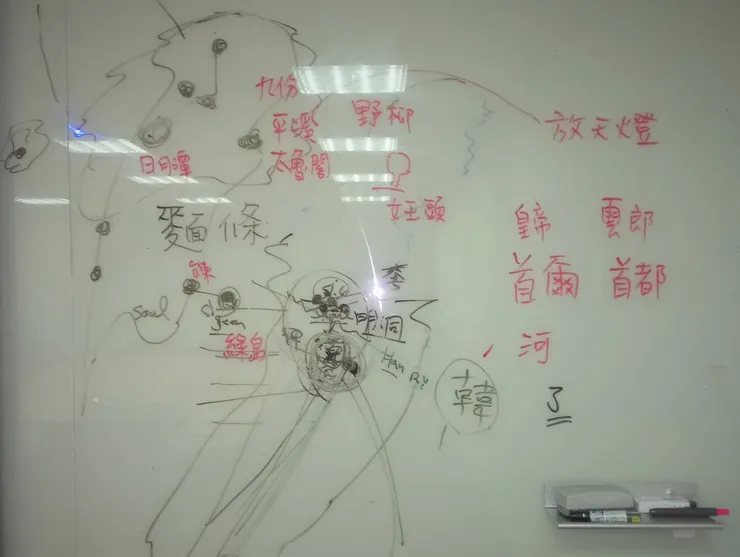 九份
平溪
太魯閣
野柳
放天燈
日月潭
女王頭
麵條
皇帝 雲郎
首爾 首都
彎
soul
明洞
綠島
河
韓
了